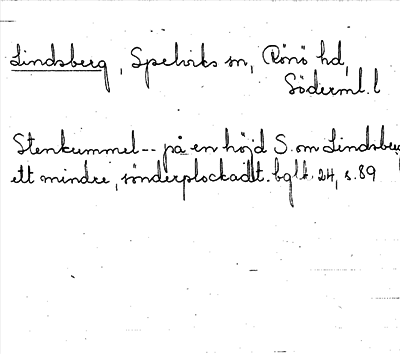 Lindsberg, Spelviks sn, Rönö hd,
Söderml. l
Stenkummel-- på en höjd S. om Lindsberg
ett mindre, sönderplockadt. bglk. 24, s. 89